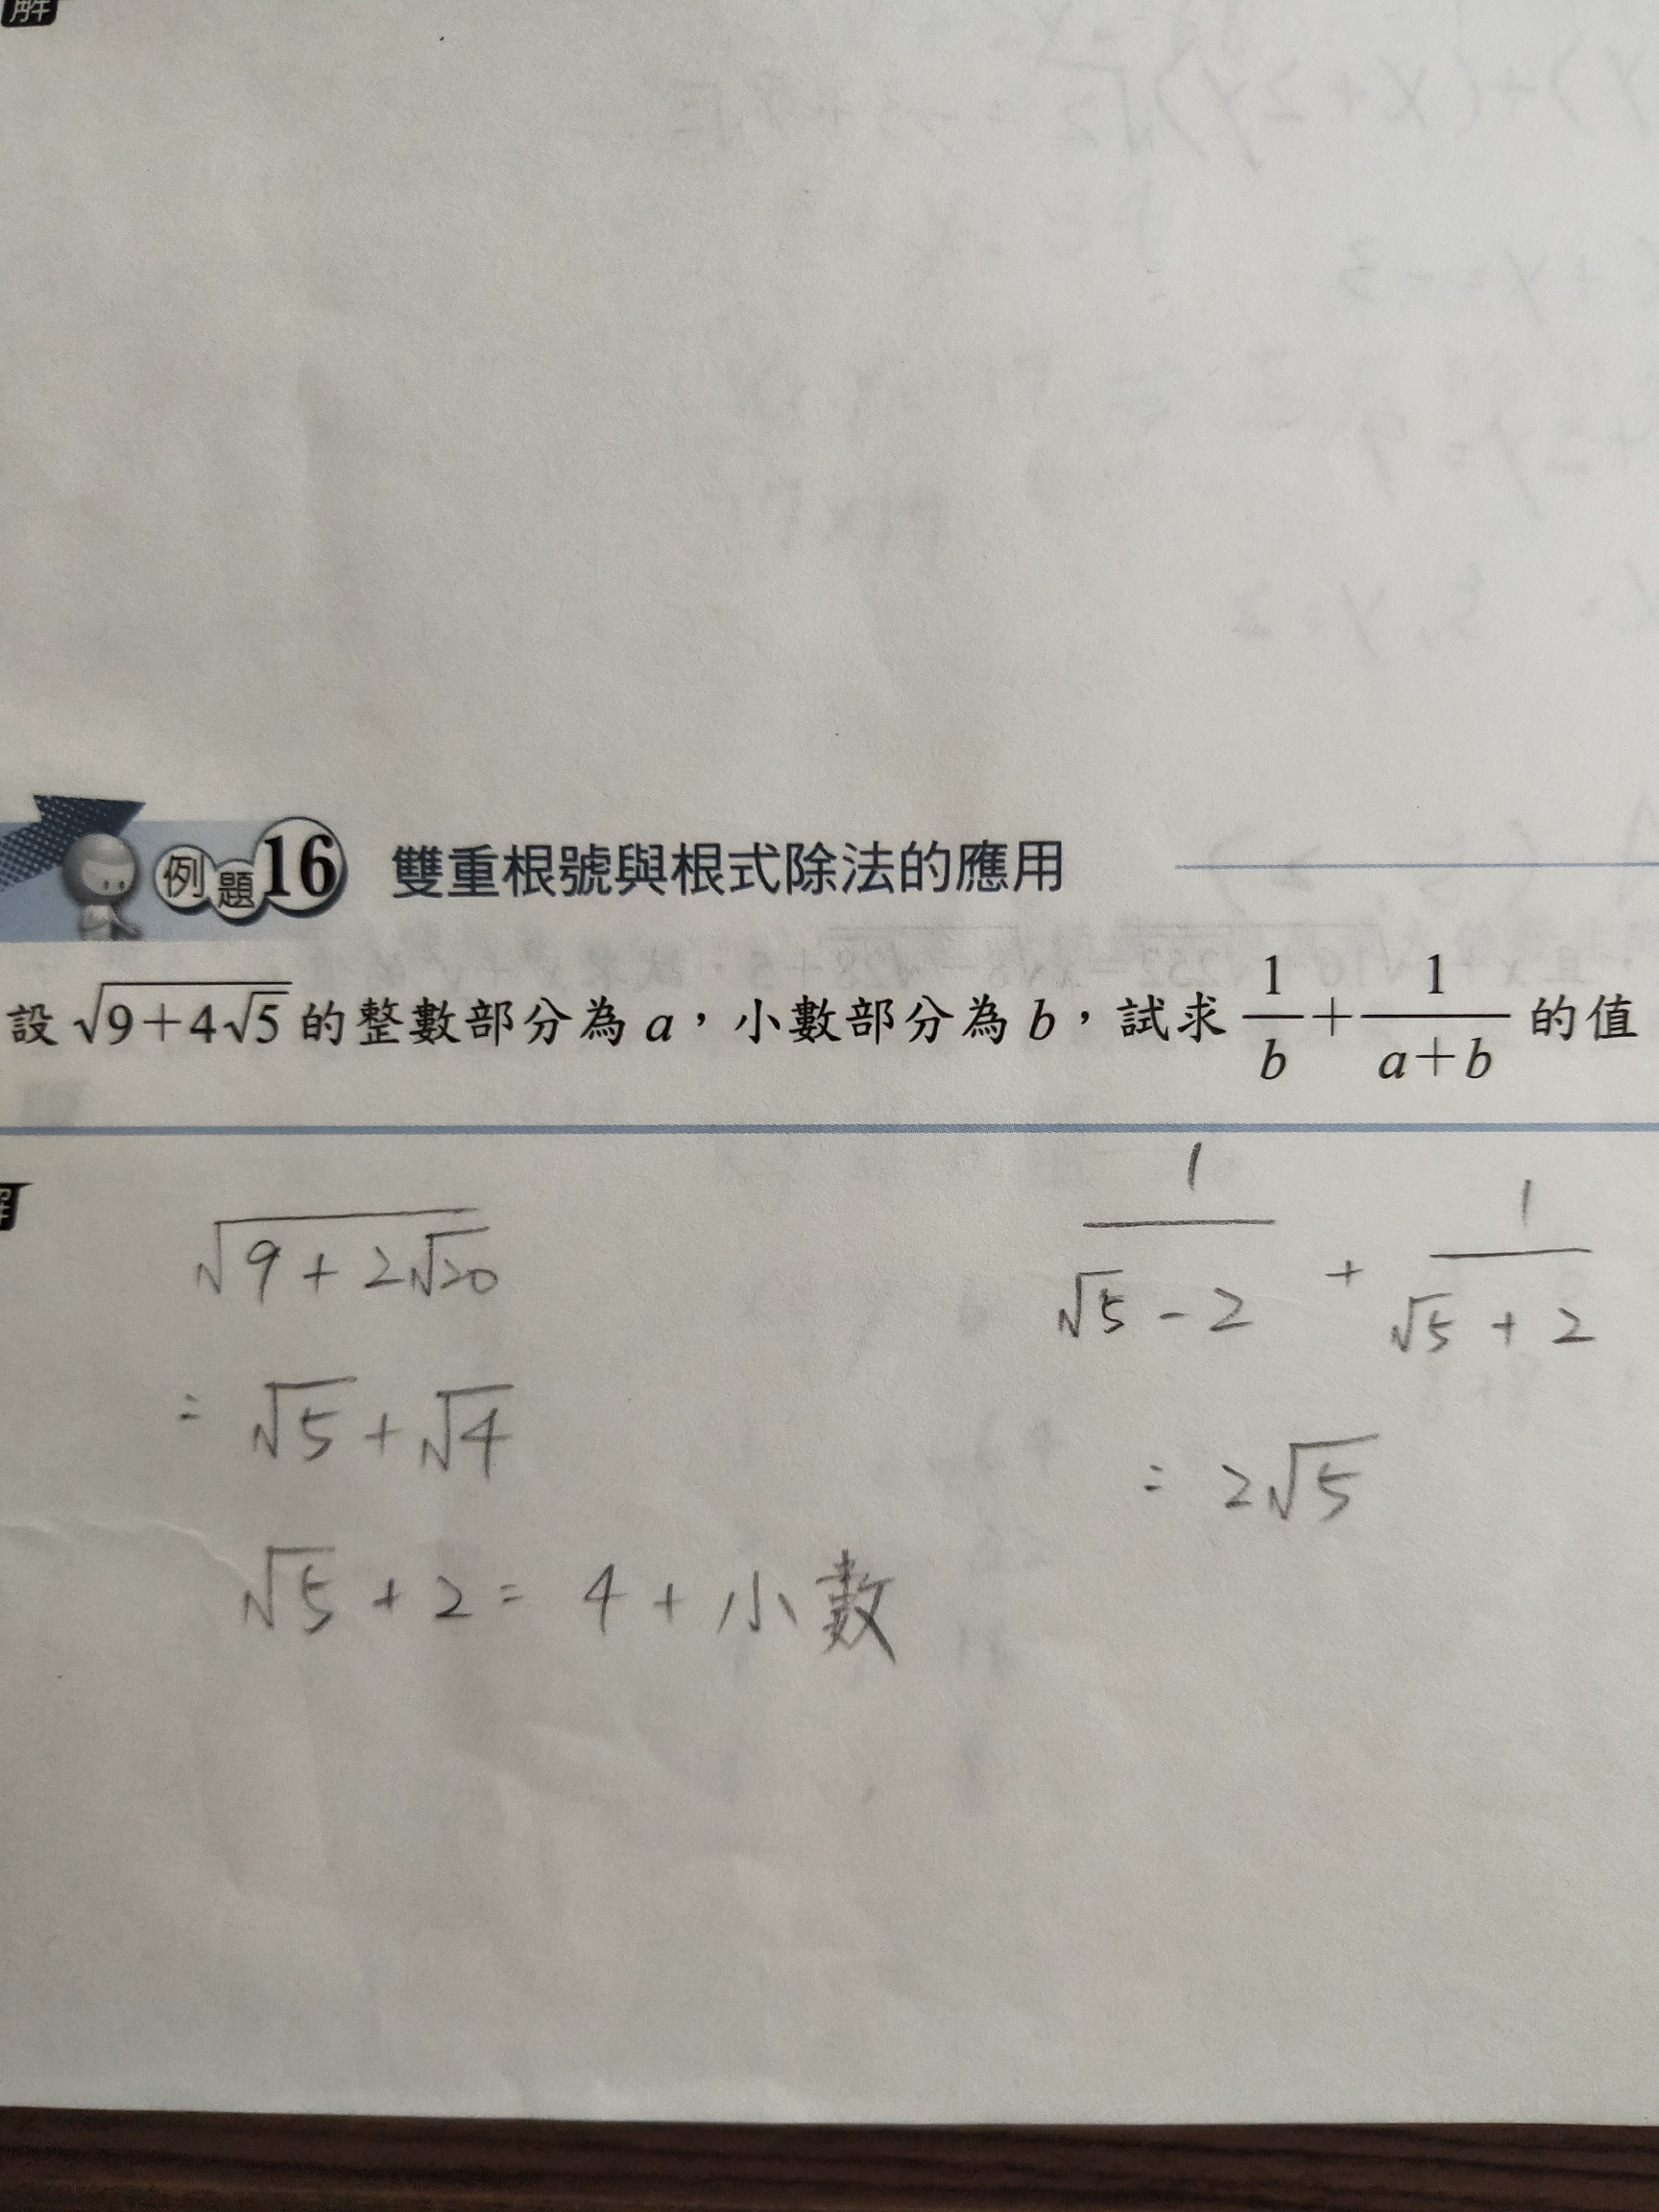 解
例題16 雙重根號與根式除法的應用
設 √(9+4√5) 的整數部分為 a，小數部分為 b，試求 1/b + 1/(a+b) 的值
解
√(9+2√20)
= √5+√4
√5+2= 4+小數
1/(√5-2) + 1/(√5+2)
= 2√5